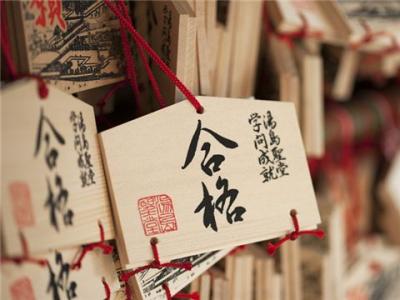 湯島聖堂
学問成就
合格
湯島聖堂
合格
合
願